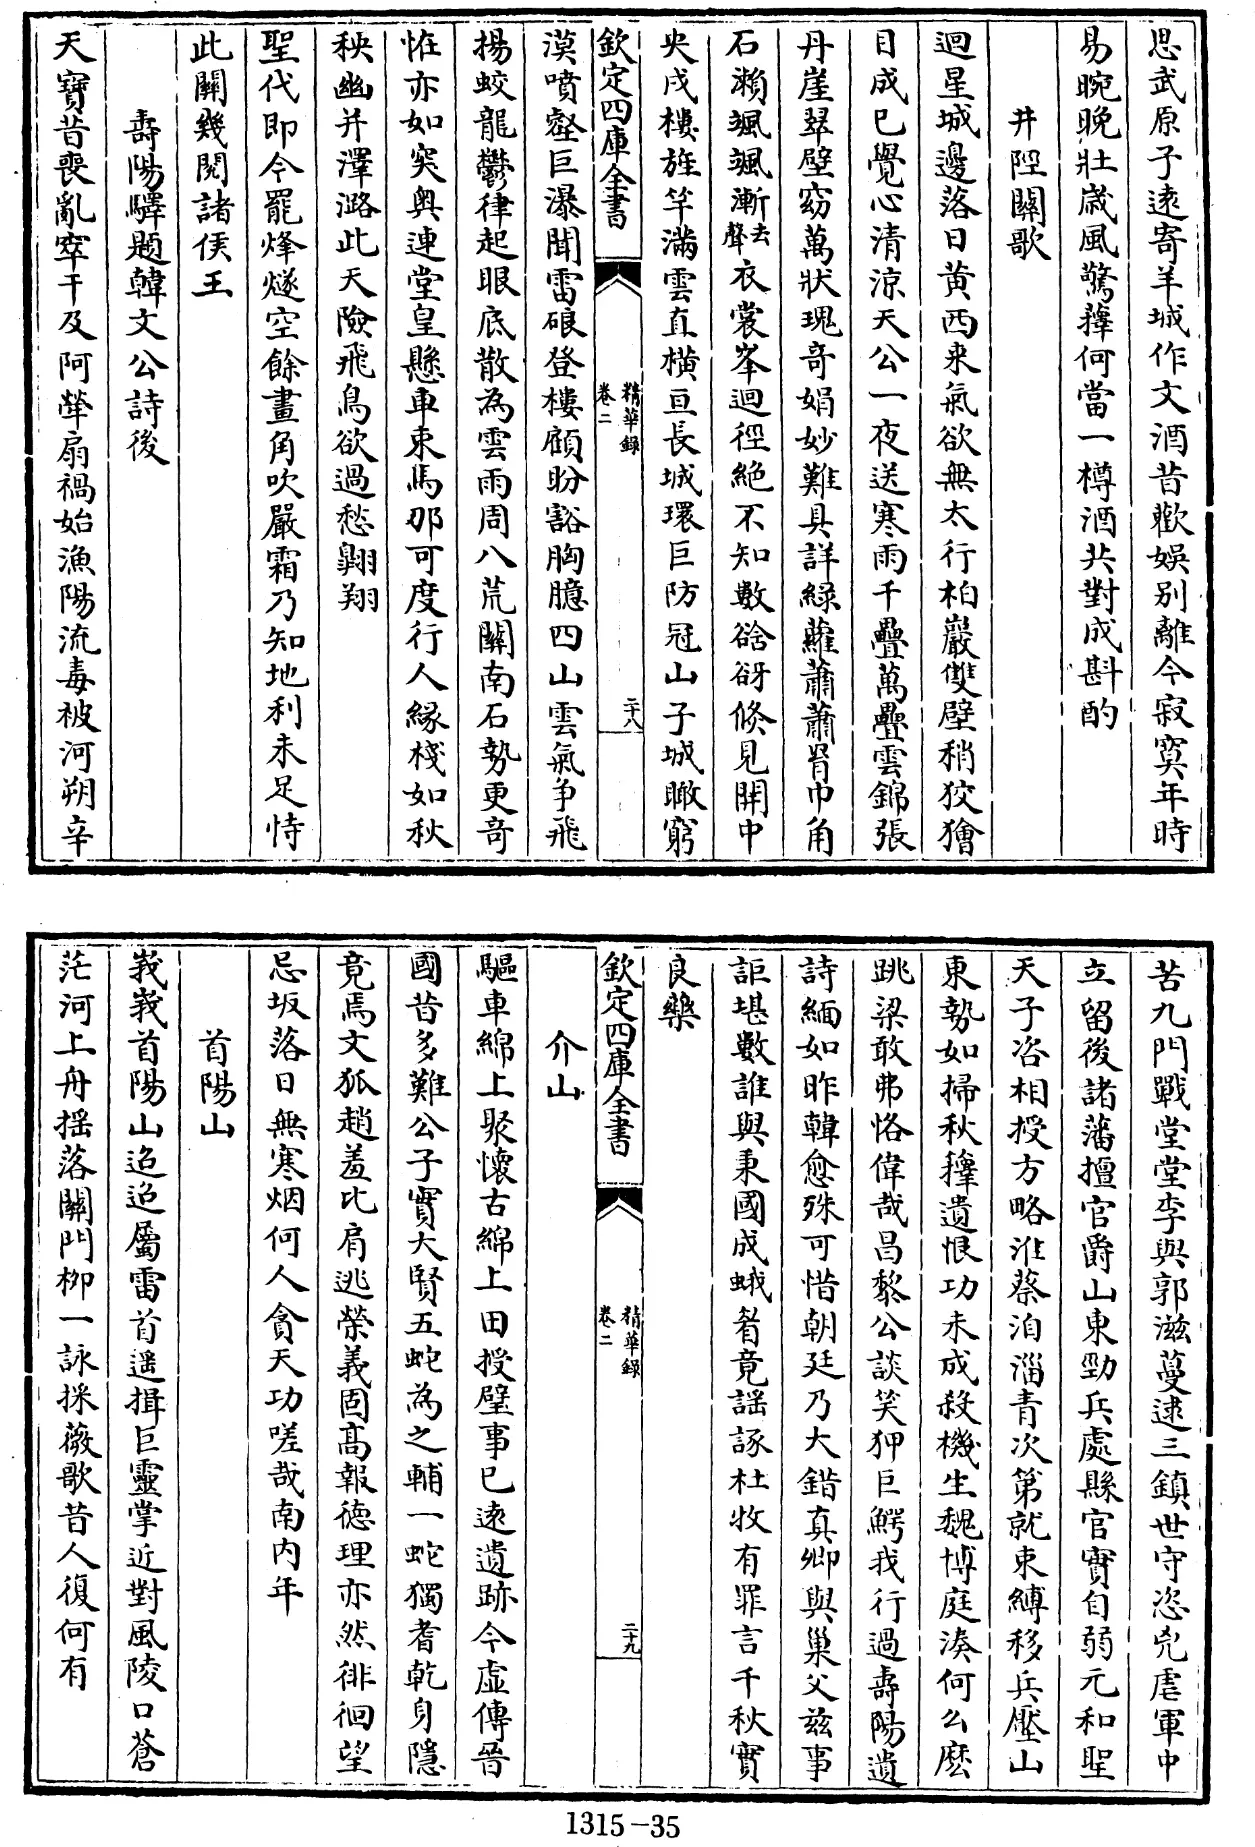 思武原子遠寄羊城作文酒昔歡娛别離今寂寞年時
易晼晚壯歲風驚籜何當一樽酒共對成斟酌
井陘關歌
迴星城邊落日黄西来氣欲無太行柏巖雙壁稍狡獪
目成已覺心清涼天公一夜送寒雨千疊萬疊雲錦張
丹崖翠壁窈萬狀瑰奇娟妙難具詳緑蘿蕭蕭罥巾角
石瀨颯颯漸去聲衣裳峯迴徑絶不知數谽谺倐見開中
央戍樓旌竿滿雲直横亘長城環巨防冠山子城瞰窮
欽定四庫全書
精華録
卷二
二十八
漠噴壑巨瀑聞雷硠登樓顧盼豁胸臆四山雲氣争飛
揚蛟龍鬱律起眼底散為雲雨周八荒關南石勢更奇
恠亦如突奥連堂皇懸車束馬那可度行人縁棧如秋
秧幽并澤潞此天險飛鳥欲過愁翺翔
聖代即今罷烽燧空餘畫角吹嚴霜乃知地利未足恃
此關幾閱諸侯王
壽陽驛題韓文公詩後
天寶昔喪亂窂干及阿犖扇禍始漁陽流毒被河朔辛
苦九門戰堂堂李與郭滋蔓逮三鎮世守恣兇虐軍中
立留後諸藩擅官爵山東勁兵處縣官實自弱元和聖
天子咨相授方略淮蔡洎淄青次第就束縛移兵壓山
東勢如掃秋籜遺恨功未成殺機生魏博庭湊何么麽
跳梁敢弗恪偉哉昌黎公談笑狎巨鰐我行過壽陽遺
詩緬如昨韓愈殊可惜朝廷乃大錯真卿與巢父兹事
詎堪數誰與秉國成蛾眉竟謡諑杜牧有罪言千秋實
良藥
欽定四庫全書
精華録
卷二
二十九
介山
驅車綿上聚懷古綿上田授璧事已遠遺跡今虚傳晉
國昔多難公子實大賢五蛇為之輔一蛇獨耆乾身隱
竟焉文狐趙羞比肩逃榮義固髙報德理亦然徘徊望
忌坂落日無寒烟何人貪天功嗟哉南内年
首陽山
莪莪首陽山迢迢屬雷首遥揖巨靈掌近對風陵口蒼
茫河上舟揺落關門桺一詠採薇歌昔人復何有
1315-35